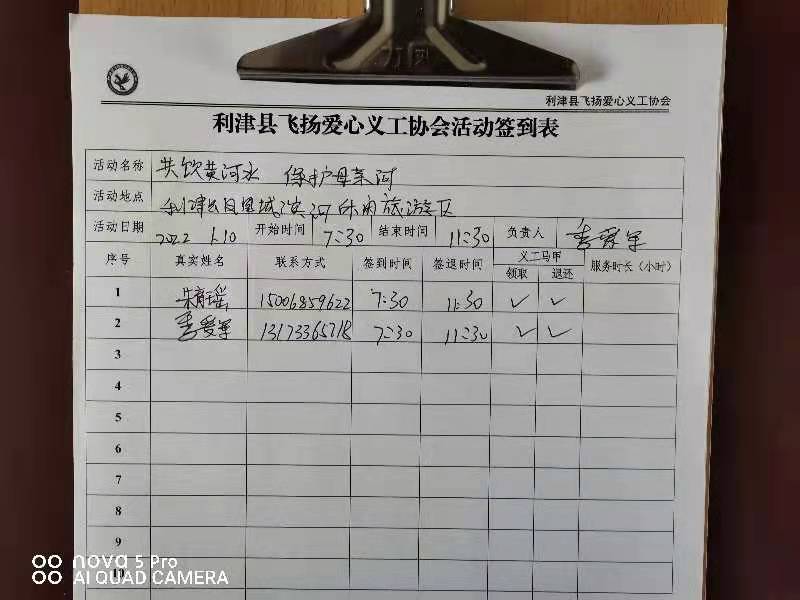 利津县飞扬爱心义工协会
利津县飞扬爱心义工协会活动签到表
活动名称 共饮黄河水 保护母亲河
活动地点 利津县 滨河休闲旅游区
活动日期 2022 1.10 开始时间 7:30 结束时间 11:30 负责人 李爱军
序号 真实姓名 联系方式 签到时间 签退时间 义工马甲 服务时长（小时）
领取 退还
1 15006859622 7:30 11:30 ✓ ✓
2 李爱军 13173365718 7:30 11:30 ✓ ✓
3
4
5
6
7
8
9
10
nova 5 Pro
AI QUAD CAMERA